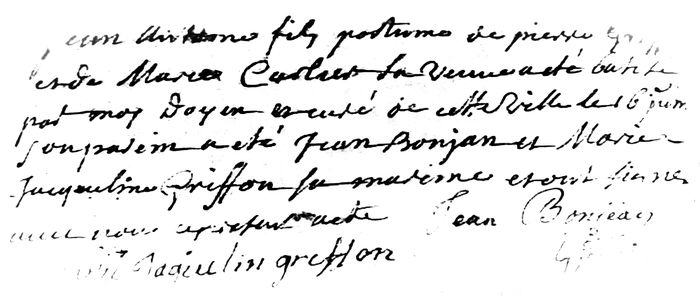 jean Antoine fils postume de pierre
et de Marie Carlier sa veuve a eté batisé
par moy Doyen et curé de cette Ville le 16 juin
son parein a été Jean Bonjan et Marie
Jacqueline Griffon sa mareine et ont signé
avec nous le present acte Jean Bonjean
Jaquelin greffon